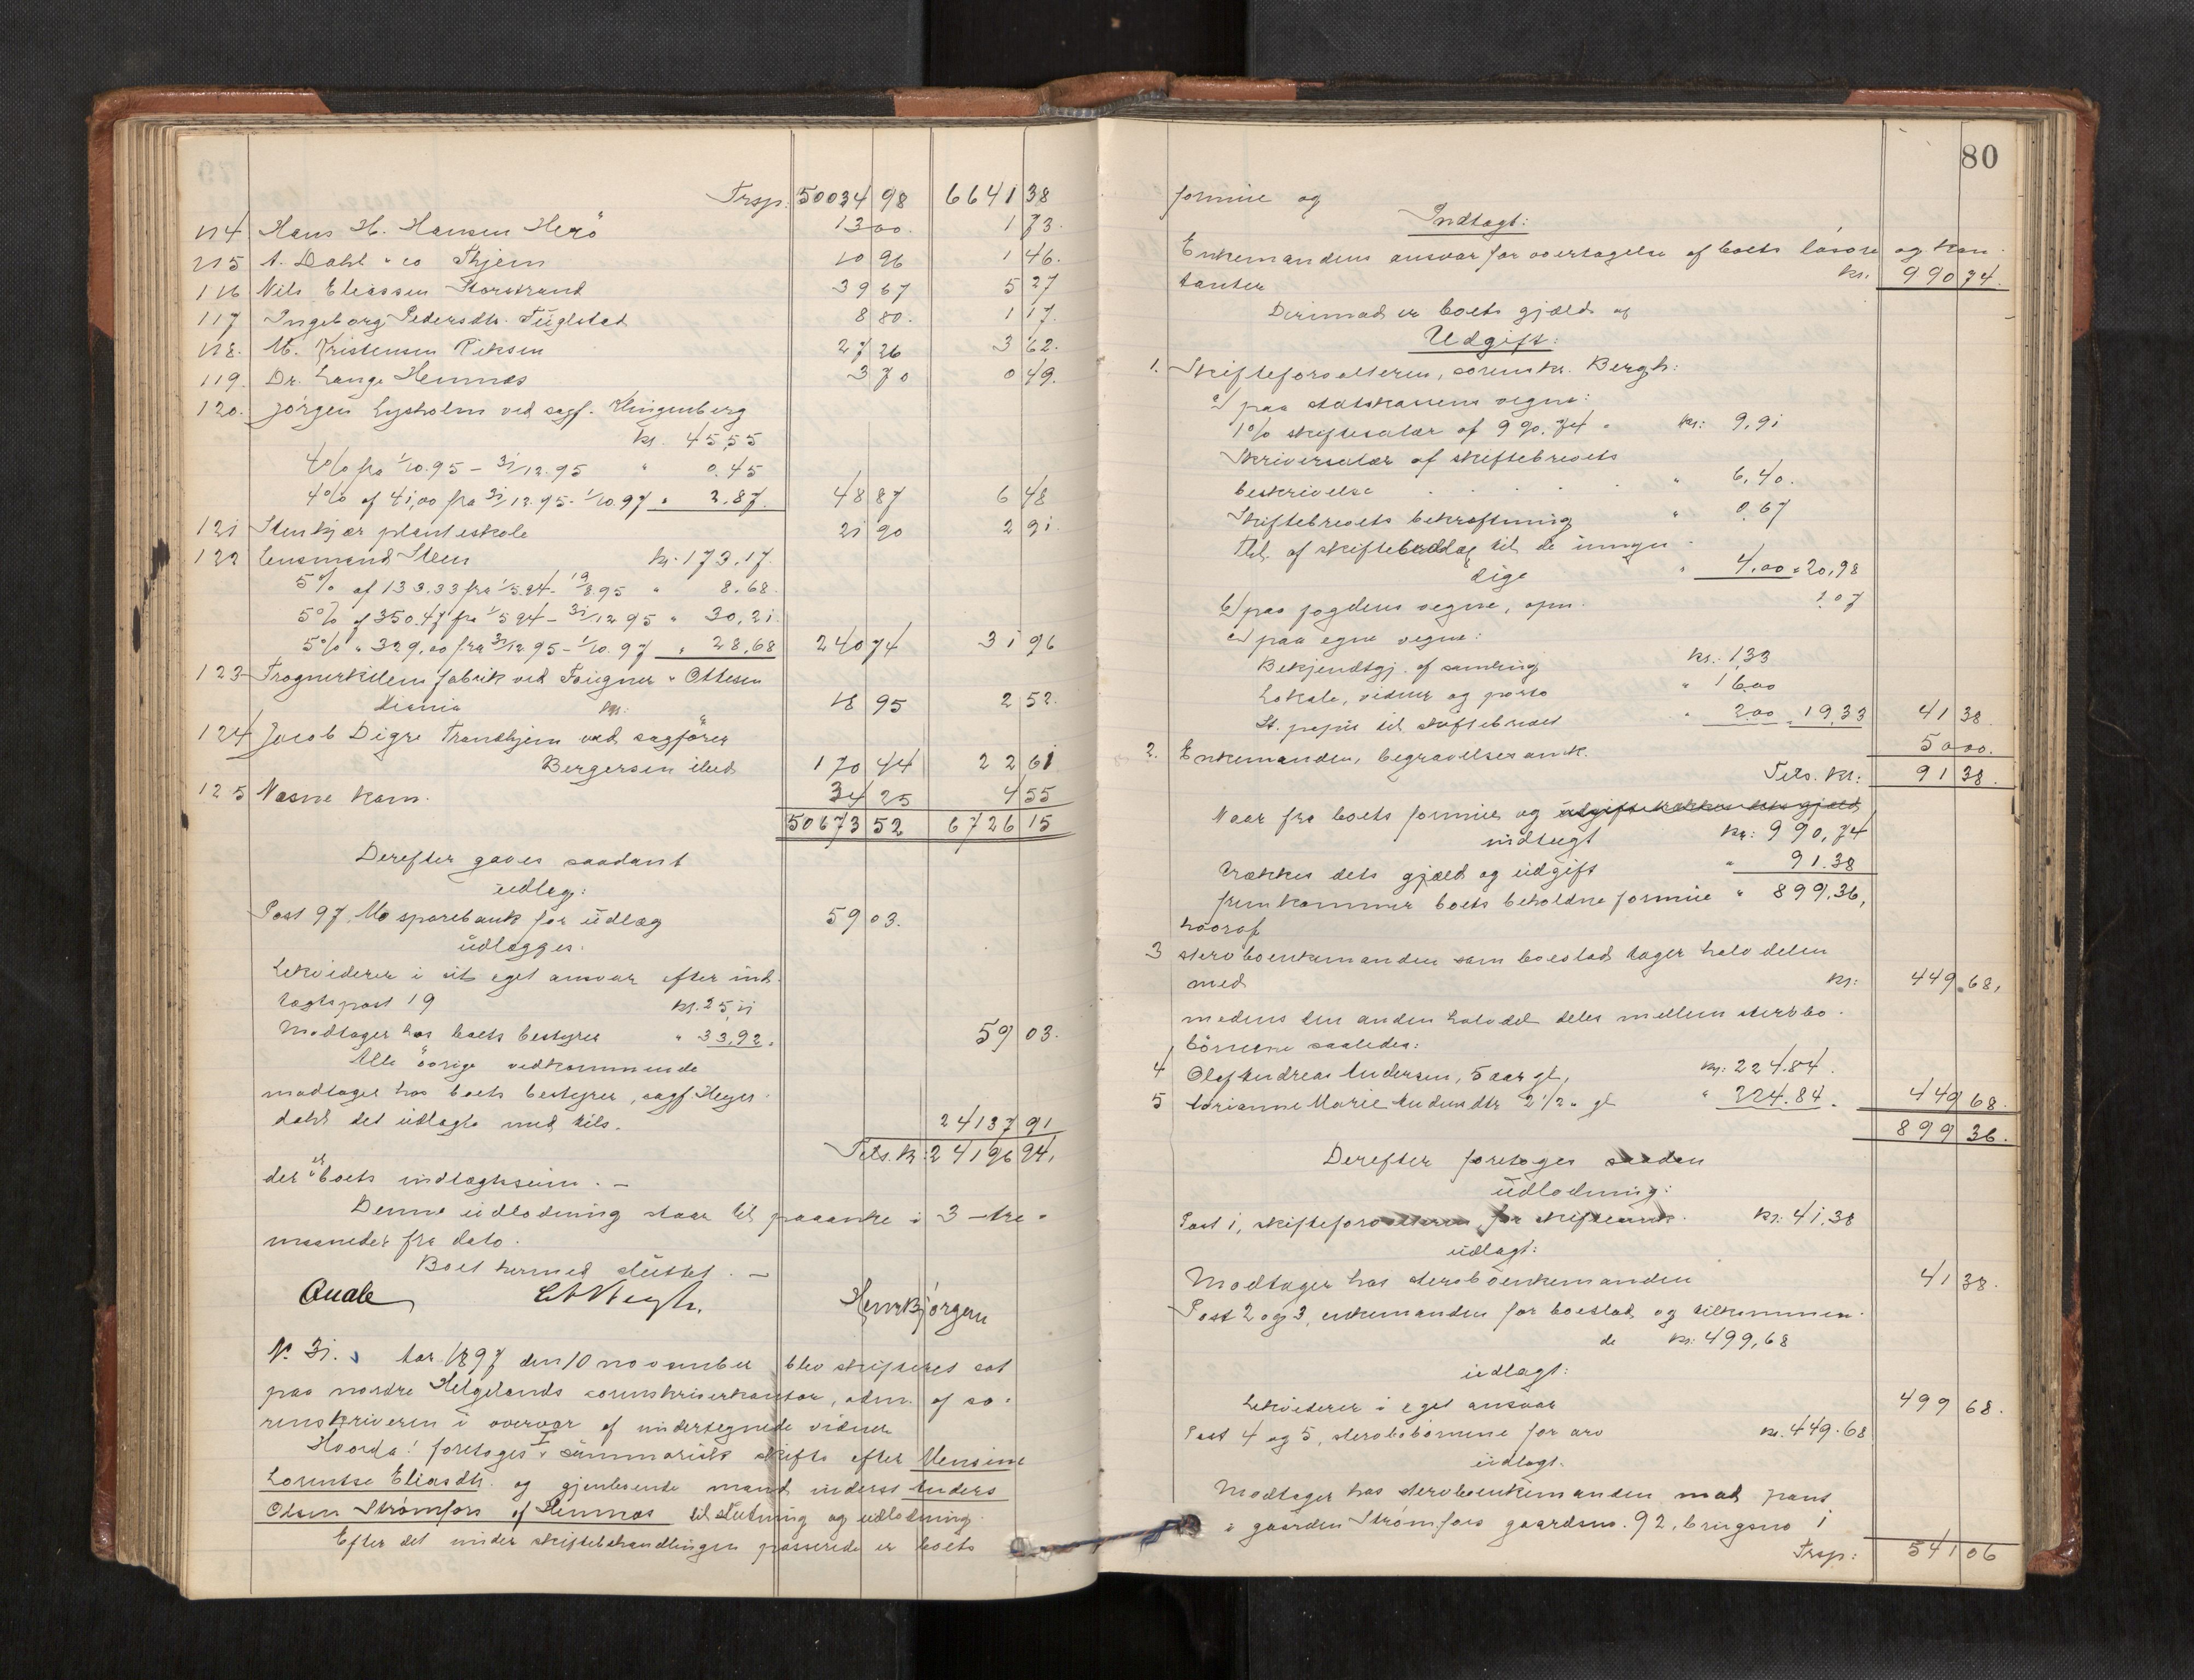 Trsp. 50034 98 6641 38
114 Hans H. Hansen Herö 13 00. 1 73.
115 A. Dahl & co Thjem 10 96 1 46.
116 Nils Eliassen Storstrand 39 67 5 27
117 Ingeborg Pedersdtr. Fuglstad 8 80. 1 17.
118. M. Kristensen 27 26 3 62.
119. Dr. Lange Hemnæs 3 70 0 49.
120. Jörgen Lysholm ved sagf. Klingenberg
kr. 45,55
4% fra 1/10.95 – 31/12.95 " 0.45
4% af 41,00 fra 31/12.95 - 1/10.97 " 2.87. 48 87 6 48
121 Stenkjær planteskole 21 90 2 91.
122 Lensmand Steen kr. 173.17.
5% af 133.33 fra 1/5.94 - 19/8.95 " 8.68.
5% af 350.47 fra 1/5 94 – 31/12 95 " 30,21
5% " 329,00 fra 31/12 95 – 1/10.97 " 28,68 240 74 31 96
123 Trognerkilens fabrik ved Faigner & Ottesen
kr: 18 95 2 52.
124 Jacob Digre Trondhjem ved sagförer
Bergersen ibid 170 44 22 61
125 Næsne kom. 34 25 4 55
50673 52 6726 15
Derefter gaves saadant
udlæg:
Post 97. Mo sparebank for udlæg 59 03.
udlægges.
Likviderer i sit eget ansvar efter ind-
tægtspost 19 kr. 25,11
Modtager hos boets bestyrer " 33,92. 59 03.
Alle övrige vedkommende
modtager hos boets bestyrer, sagf. Heyer-
dahl det udlagte med tils. 24137 91
Tils. kr. 24196 94,
der er boets indtægtssum. –
Denne udlodning staar til paaanke i 3 – tre –
maaneder fra dato.
Boet hermed sluttet. –
Quale Henr Björgen
No. 31. Aar 1897 den 10 november blev skifteret sat
paa nordre Helgelands sorenskriverkontor, adm. af so-
renskriveren i overvær af undertegnede vidner
Hvorda: foretoges I summarisk skifte efter Mensine
Lorentse Eliasdtr. og gjenlevende mand inderst Anders
Olsen Strømfors af Hemnæs til slutning og udlodning.
Efter det under skiftebehandlingen passerede er boets
80
formue og
Indtægt:
Enkemandens ansvar for overtagelse af boets løsøre og kon-
tanter kr. 990 74.
Derimod er boets gjæld og
Udgift:
1. Skifteforvalteren, sorenskr. Bergh:
a) paa statskassens vegne:
1% skiftesalær af 990.74 " kr: 9.91
Skriversalær af skiftebrevets
beskrivelse . . . . . " 6,40.
Skiftebrevets bekræftning " 0.67
Thl. af skifteudlæg til de umyn-
dige " 4.00 = 20,98
b) paa fogdens vegne, opn. 1.07
c) paa egne vegne:
Bekjendtgj. af samling kr.: 1,33
Lokale, vidner og porto " 16.00
St. papir til skiftebrevet " 2.00 19,33 41 38.
2. Enkemanden, begravelsesomk. 50 00.
Tils. kr: 91 38.
Naar fra boets formue og
indtægt kr: 990,74
trækkes dets gjæld og udgift " 91.38
fremkommer boets beholdne formue " 899.36,
hvoraf
3 sterboenkemanden som boeslod tager halvdelen
med kr: 449.68,
medens den anden halvdel deles mellem sterbo-
börnene saaledes:
4 Olaf Andreas Andersen, 5 aar gl, kr: 224.84.
5 Lorianne Marie Andersdtr 2 1/2 " gl " 224.84. 449 68.
899 36.
Derefter foretoges saadan
udlodning:
Post 1, skifteforvalteren for skifteomk. kr: 41,38
udlagt:
Modtager hos sterboenkemanden 41 38.
Post 2 og 3, enkemanden for boeslod og tilkommen-
de kr: 499,68
udlagt:
Likviderer i eget ansvar 499 68.
Post 4 og 5, sterbobörnene for arv kr. 449.68
udlagt.
Modtager hos sterboenkemanden mod pant
i gaarden Strømfors gaardsno. 92, brugsno 1
Trsp: 541 06